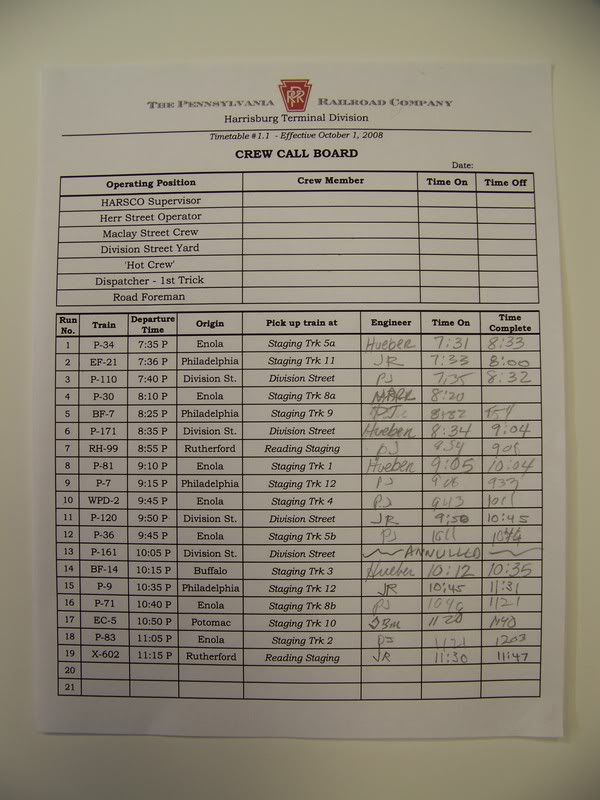 THE PENNSYLVANIA PRR RAILROAD COMPANY
Harrisburg Terminal Division
Timetable #1.1 - Effective October 1, 2008
CREW CALL BOARD
Date:
Operating Position Crew Member Time On Time Off
HARSCO Supervisor
Herr Street Operator
Maclay Street Crew
Division Street Yard
'Hot Crew'
Dispatcher - 1st Trick
Road Foreman
Run No. Train Departure Time Origin Pick up train at Engineer Time On Time Complete
1 P-34 7:35 P Enola Staging Trk 5a Hueber 7:31 8:33
2 EF-21 7:36 P Philadelphia Staging Trk 11 JR 7:33 8:00
3 P-110 7:40 P Division St. Division Street PJ 7:35 8:32
4 P-30 8:10 P Enola Staging Trk 8a 8:20
5 BF-7 8:25 P Philadelphia Staging Trk 9 PJ
6 P-171 8:35 P Division St. Division Street Hueber 8:34 9:04
7 RH-99 8:55 P Rutherford Reading Staging PJ 854
8 P-81 9:10 P Enola Staging Trk 1 Hueber 9:05 10:04
9 P-7 9:15 P Philadelphia Staging Trk 12 PJ 933
10 WPD-2 9:45 P Enola Staging Trk 4 PJ 943 1011
11 P-120 9:50 P Division St. Division Street JR 9:50 10:45
12 P-36 9:45 P Enola Staging Trk 5b PJ 1011
13 P-161 10:05 P Division St. Division Street ANNULLED
14 BF-14 10:15 P Buffalo Staging Trk 3 Hueber 10:12 10:35
15 P-9 10:35 P Philadelphia Staging Trk 12 JR 10:45 11:31
16 P-71 10:40 P Enola Staging Trk 8b PJ 1121
17 EC-5 10:50 P Potomac Staging Trk 10 1120
18 P-83 11:05 P Enola Staging Trk 2 PJ 1121 1203
19 X-602 11:15 P Rutherford Reading Staging JR 11:30 11:47
20
21